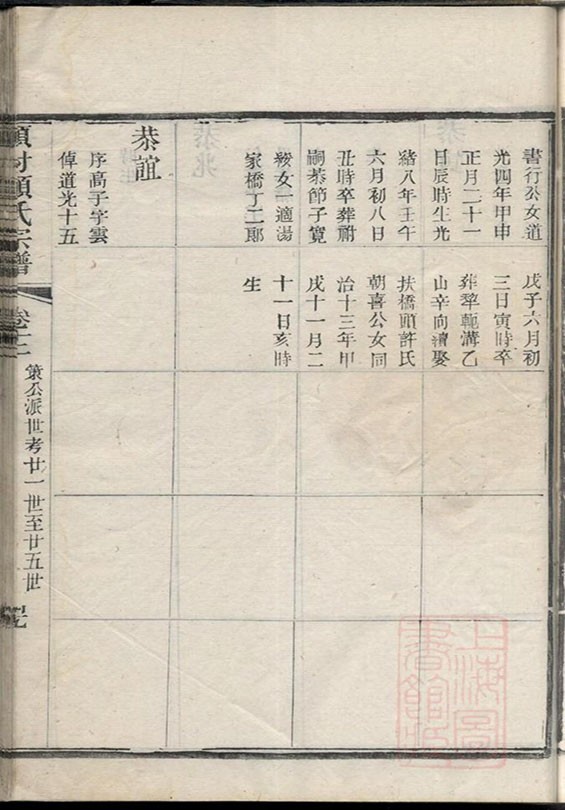 書行公女道
光四年甲申
正月二十一
日辰時生光
緒八年壬午
六月初八日
丑時卒葬祔
嗣恭節子寬
毅女一適湯
家橋丁二郎
恭誼
序高子字雲
倬道光十五
戊子六月初
三日寅時卒
葬犂軛溝乙
山辛向續娶
扶橋頭許氏
朝喜公女同
治十三年甲
戌十一月二
十一日亥時
生
顧氏宗譜
策公派世考廿一世至廿五世
上海圖書館